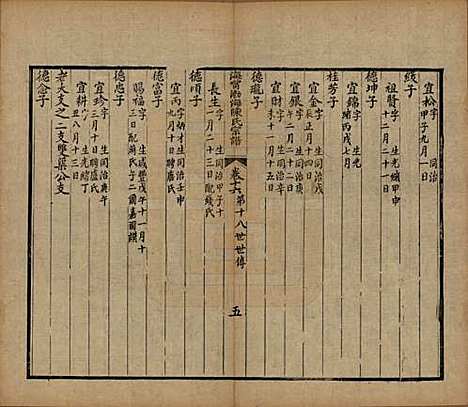 綏子
宜松 字 生同治
甲子九月一日
祖賢 字 生光緒甲申
十二月二十一日
德坤子
宜錦 字 生光
緒丙戌七月
桂芳子
宜金 字 生同治戊
辰正月十四日
宜銀 字 生同治庚
午二月二日
宜財 字 生同治辛
未十一月十五日
德瓏子
海甯渤海陳氏宗譜
卷十六 第十八世世傳
五
長生 字 生同治甲子十
一月二十三日配錢氏
德順子
宜丙 字炳才生同治壬申
九月十日聘盧氏
德富子
賜福 字 生咸豐戊午十一月十
三日配湯氏子二爾嘉爾
德忠子
宜珍 字 生同治庚午
三月十日聘盧氏
宜耕 字 生光緒丁
丑八月十三日
老大支之二支雙渠公支
德念子